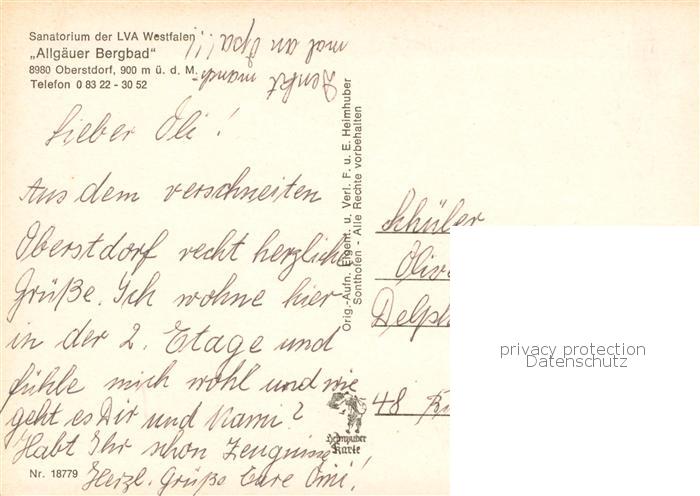 Sanatorium der LVA Westfalen
„Allgäuer Bergbad"
8980 Oberstdorf, 900 m ü. d. M.
Telefon 0 83 22 - 30 52
Denkt manch-
mal an Opa!!!
Lieber Oli!
Aus dem verschneiten
Oberstdorf recht herzliche
Grüße. Ich wohne hier
in der 2. Etage und
fühle mich wohl und wie
geht es Dir und Kami?
Habt Ihr schon Zeugnisse
Herzl. Grüße Eure Omi!
Nr. 18779
Orig.-Aufn. Eigent. u. Verl. F. u. E. Heimhuber
Sonthofen - Alle Rechte vorbehalten
Heimhuber
Karte
Schüler
Oliv
Delph
48
privacy protection
Datenschutz